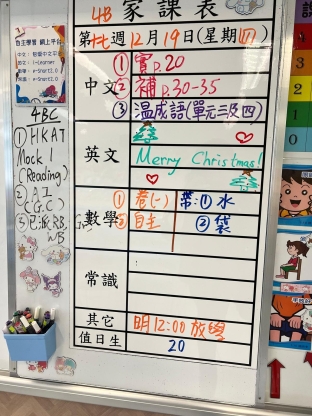 4B 家課表
第十七週12月19日(星期四)
中文
① 寶p.20
② 補p.30-35
③ 温成語(單元三及四)
英文
Merry Christmas!
數學
① 卷(一)
② 自主
帶:① 水
② 袋
常識
其它
明12:00放學
值日生
20
自主學習 網上平台
4BC
① HKAT
Mock 1
(Reading)
② A I
(G.C)
③ 已派RB, G
WB